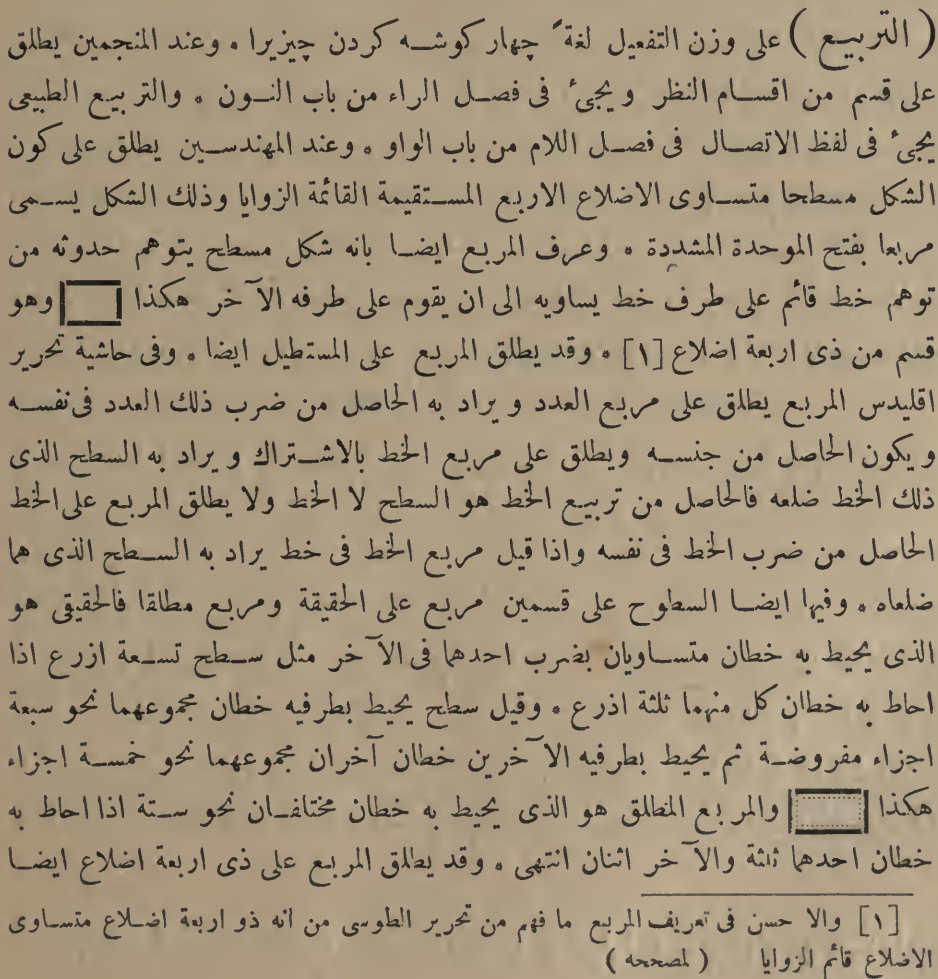 ( التربيع ) على وزن التفعيل لغةً چهار كوشه كردن چيزيرا ٠ وعند المنجمين يطلق
على قسم من اقسام النظر ويجئ فى فصل الراء من باب النون ٠ والتربيع الطبيعى
يجئ فى لفظ الاتصال فى فصل اللام من باب الواو ٠ وعند المهندسين يطلق على كون
الشكل مسطحا متساوى الاضلاع الاربع المستقيمة القائمة الزوايا وذلك الشكل يسمى
مربعا بفتح الموحدة المشددة ٠ وعرف المربع ايضا بانه شكل مسطح يتوهم حدوثه من
توهم خط قائم على طرف خط يساويه الى ان يقوم على طرفه الآخر هكذا وهو
قسم من ذى اربعة اضلاع [١] ٠ وقد يطلق المربع على المستطيل ايضا ٠ وفى حاشية تحرير
اقليدس المربع يطلق على مربع العدد ويراد به الحاصل من ضرب ذلك العدد فى نفسه
ويكون الحاصل من جنسه ويطلق على مربع الخط بالاشتراك ويراد به السطح الذى
ذلك الخط ضلعه فالحاصل من تربيع الخط هو السطح لا الخط ولا يطلق المربع على الخط
الحاصل من ضرب الخط فى نفسه واذا قيل مربع الخط فى خط يراد به السطح الذى هما
ضلعاه ٠ وفيها ايضا السطوح على قسمين مربع على الحقيقة ومربع مطلقا فالحقيقى هو
الذى يحيط به خطان متساويان بضرب احدهما فى الآخر مثل سطح تسعة ازرع اذا
احاط به خطاان كل منهما ثلثة اذرع ٠ وقيل سطح يحيط بطرفيه خطان مجموعهما نحو سبعة
اجزاء مفروضة ثم يحيط بطرفيه الآخرين خطان آخران مجموعهما نحو خمسة اجزاء
هكذا والمربع المطلق هو الذى يحيط به خطان مختلفان نحو ستة اذا احاط به
خطان احدهما ثلثة والآخر اثنان انتهى ٠ وقد يطلق المربع على ذى اربعة اضلاع ايضا
[١] والاحسن فى تعريف المربع ما فهم من تحرير الطوسى من انه ذو اربعة اضلاع متساوى
الاضلاع قائم الزوايا ( لمصححه )